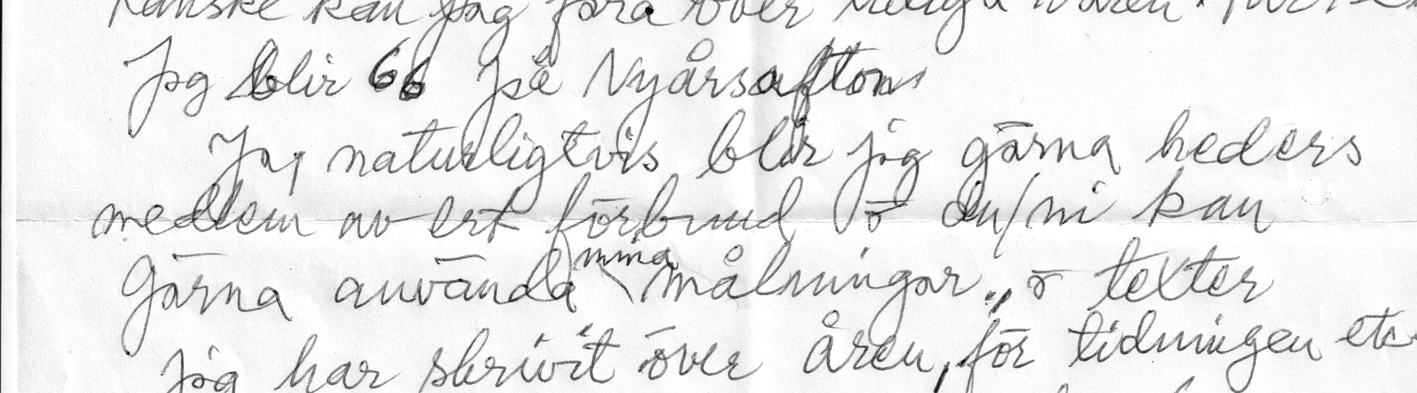 Kanske kan jag föra över
Jag blir 66 på Nyårsafton
Jag naturligtvis blir jag gärna heders
medlem av ert förbund o du/ni kan
Gärna använda mina målningar, o texter
jag har skrivit över åren, för tidningen etc